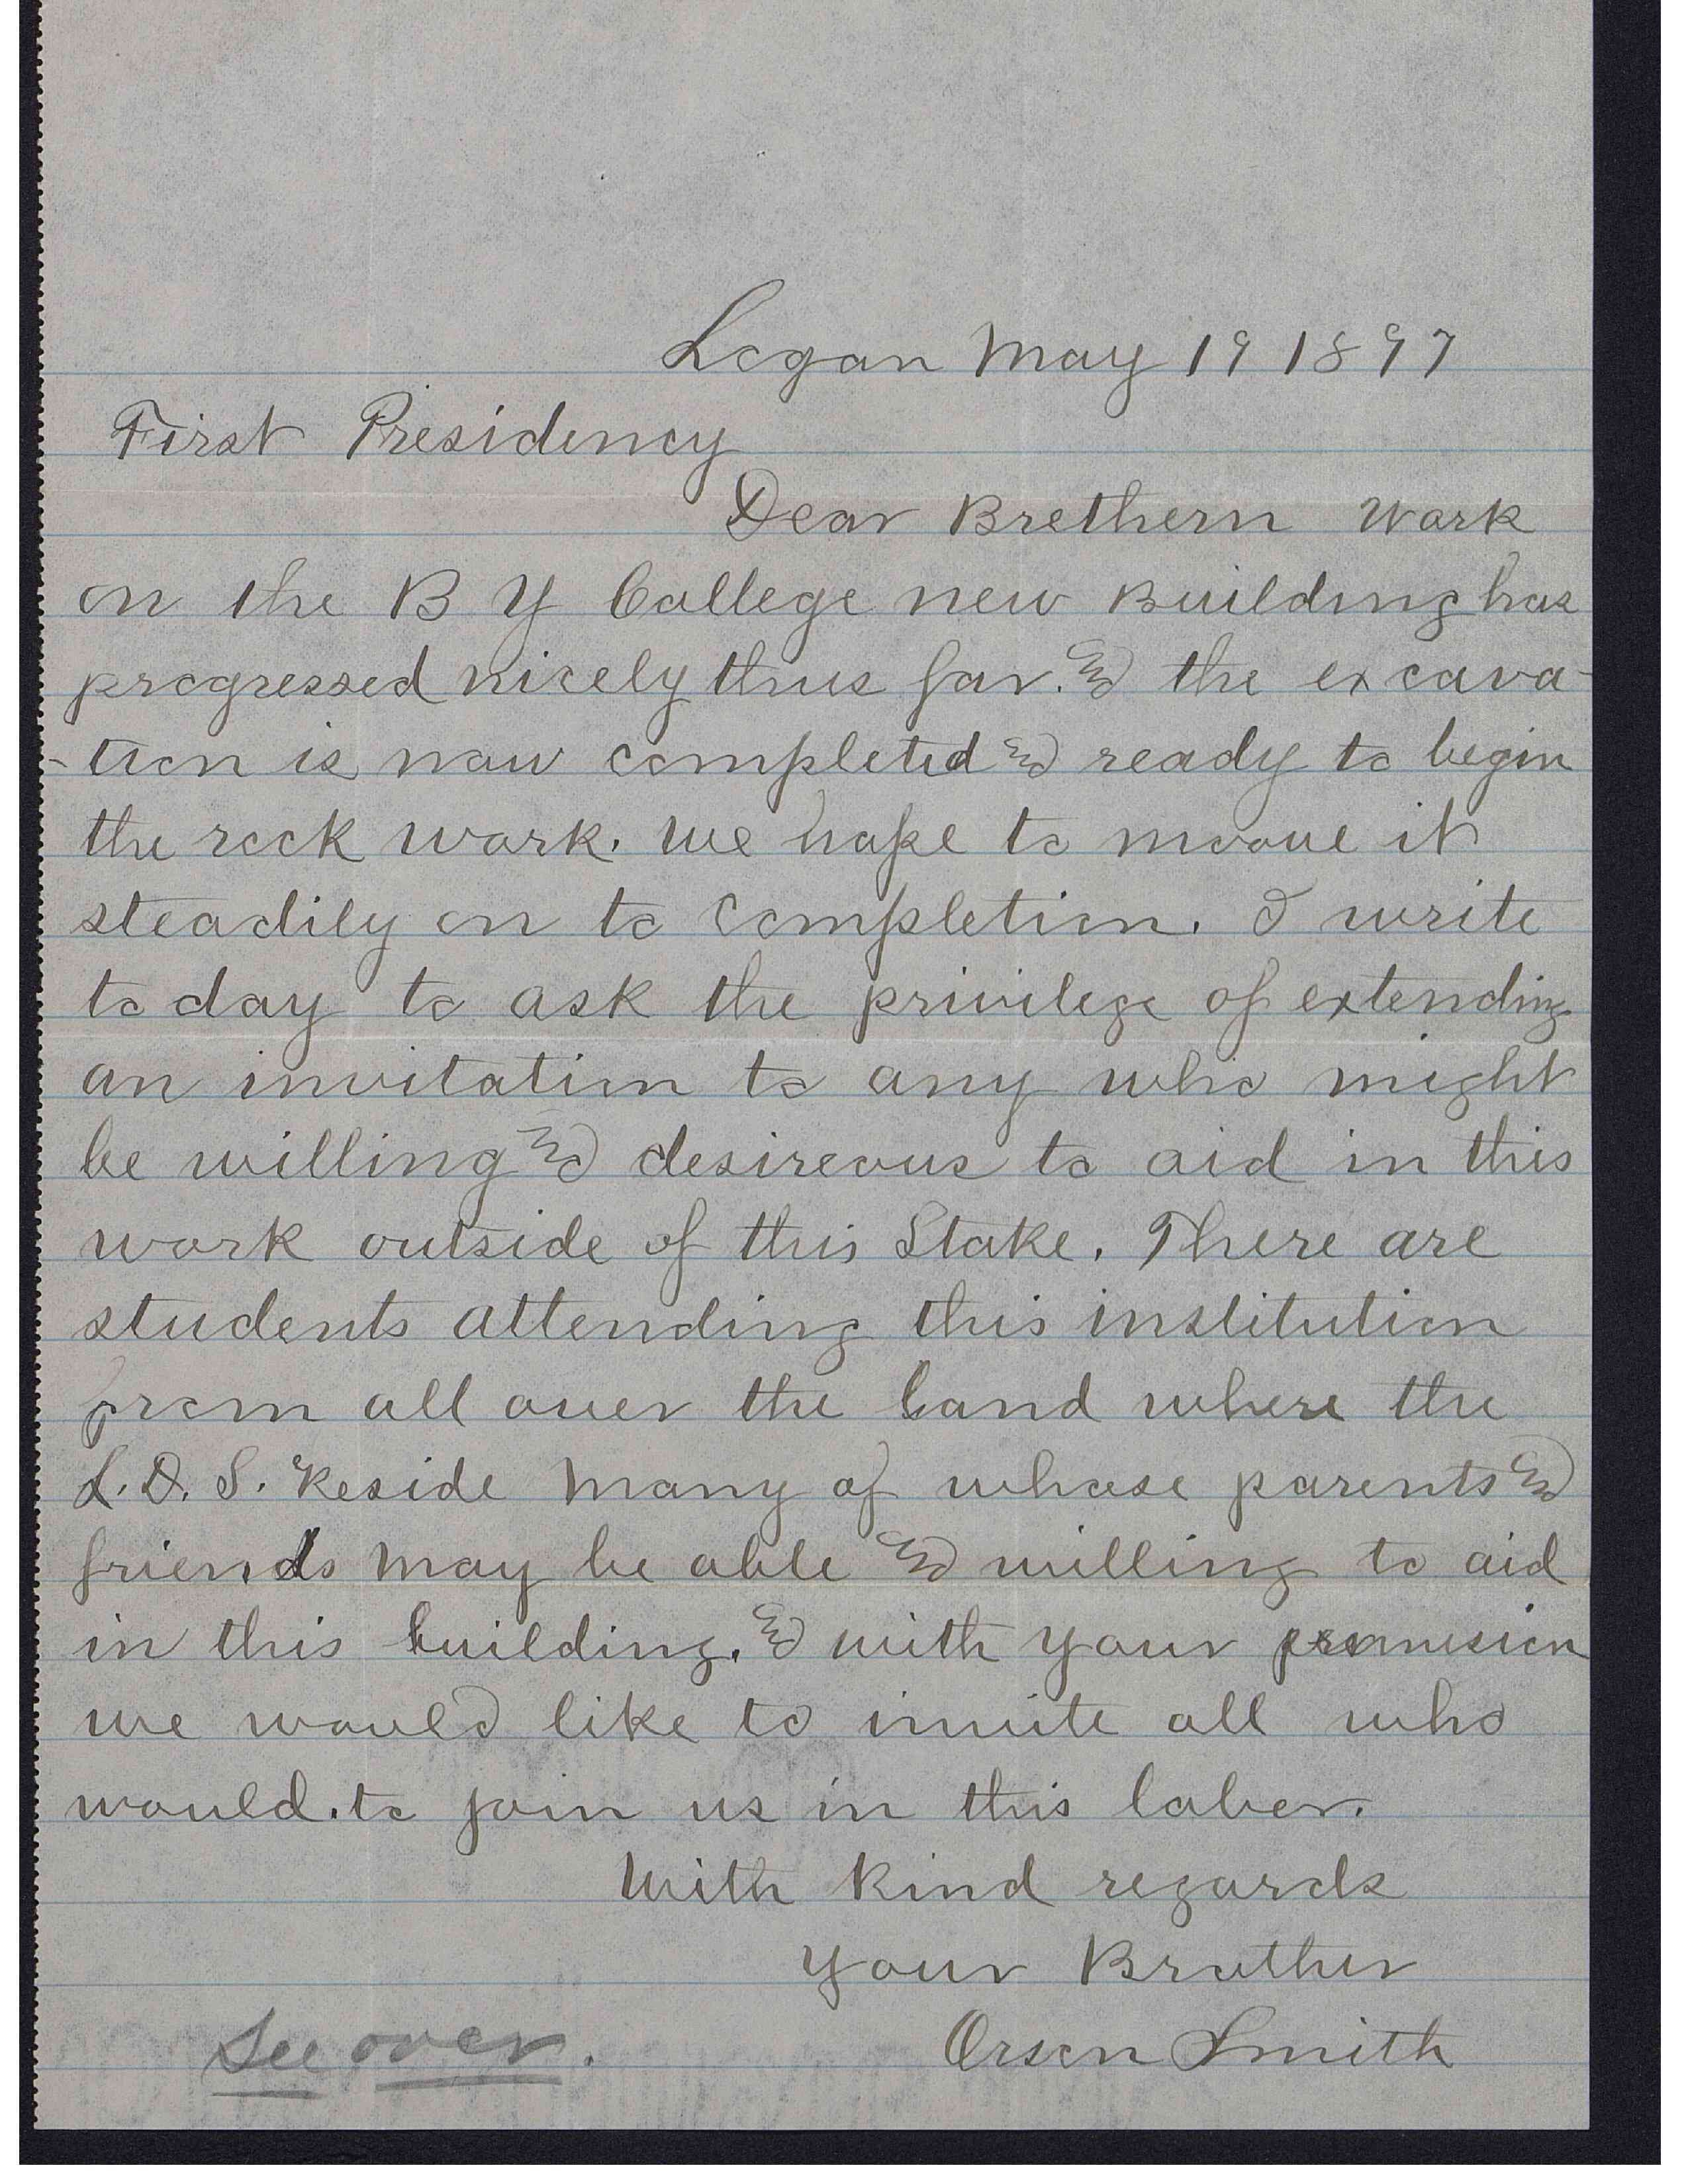 Logan May 19 1897
First Presidency
Dear Brethern Work
on the B Y College new Building has
progressed nicely thus far. & the excava-
-tion is now completed & ready to begin
the rock work. we hope to moove it
steadily on to completion. I write
to day to ask the privilege of extending
an invitation to any who might
be willing & desireous to aid in this
work outside of this Stake. There are
students attending this institution
from all over the land where the
L. D. S. Reside many of whose parents &
friends may be able & willing to aid
in this building. & with your
we would like to invite all who
would. to join us in this labor.
With Kind regards
Your Brother
Orson Smith
See over.